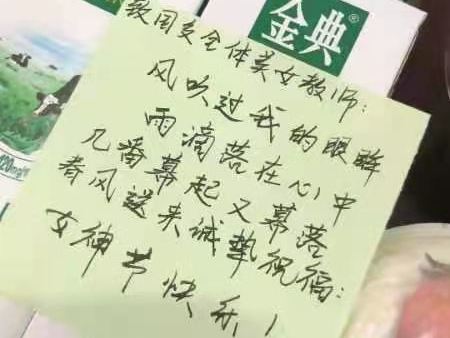 金典
致国交全体美女教师：
风吹过我的眼眸
雨滴落在心中
几番幕起又幕落
春风送来诚挚祝福：
女神节快乐！
120mg/